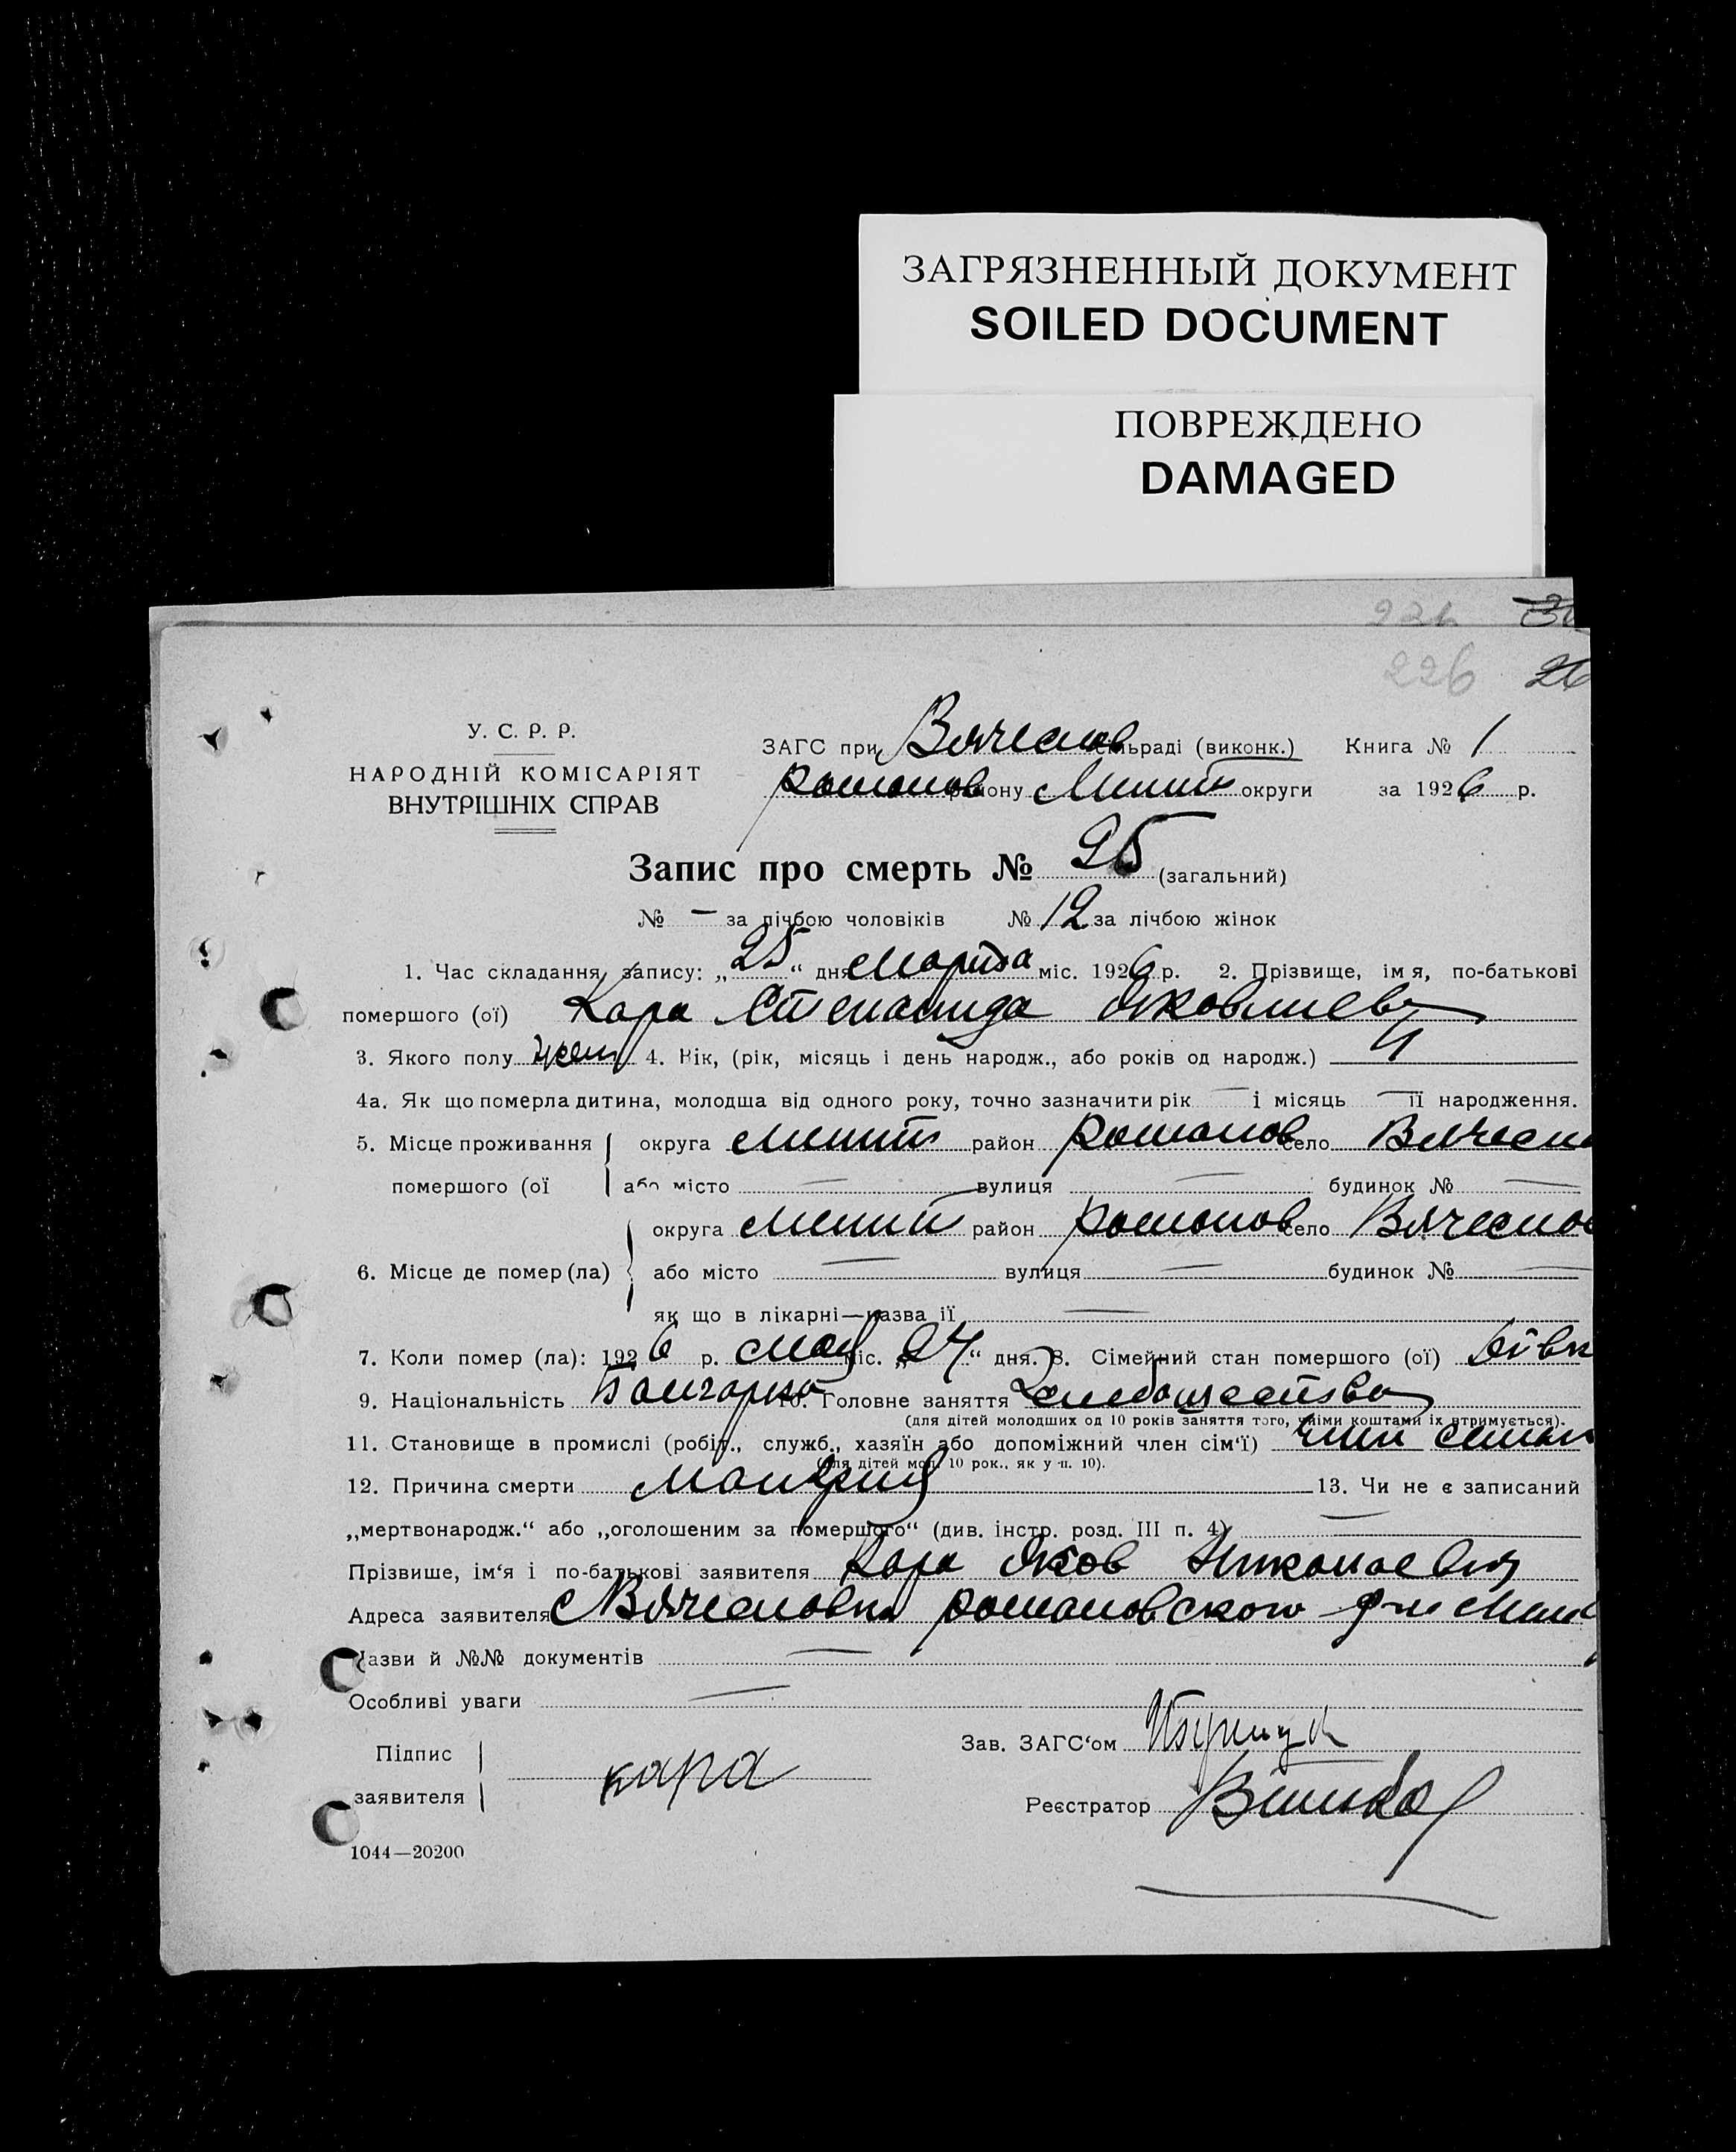 ЗАГРЯЗНЕННЫЙ ДОКУМЕНТ
SOILED DOCUMENT
ПОВРЕЖДЕНО
DAMAGED
226 26
У. С. Р. Р.
НАРОДНІЙ КОМІСАРІЯТ
ВНУТРІШНІХ СПРАВ
ЗАГС при Вячеслов сільраді (виконк.) Книга № 1
Романов району Мелит округи за 1926 р.
Запис про смерть № 25 (загальний)
№ — за лічбою чоловіків № 12 за лічбою жінок
1. Час складання запису: „25“ дня Марта міс. 1926 р. 2. Прізвище, ім я, по-батькові
помершого (ої) Кара Степанида Яковлиева
3. Якого полу жен 4. Вік, (рік, місяць і день народж., або років од народж.) 4
4а. Як що померла дитина, молодша від одного року, точно зазначити рік — і місяць — її народження.
5. Місце проживання округа Мелит район Романов село Вячесл
помершого (ої або місто — вулиця — будинок № —
округа Мелит район Романов село Вячеслов
6. Місце де помер (ла) або місто — вулиця — будинок № —
як що в лікарні—назва її —
7. Коли помер (ла): 1926 р. міс. „24“ дня. 8. Сімейний стан помершого (ої)
9. Національність Болгарка 10. Головне заняття Хлебопашество
(для дітей молодших од 10 років заняття того, чиїми коштами їх втримується).
11. Становище в промислі (робіт., служб., хазяїн або допоміжний член сім‘ї) член семьи
(для дітей мол. 10 рок., як у п. 10).
12. Причина смерти Малярия 13. Чи не є записаний
„мертвонародж.“ або „оголошеним за помершого“ (див. інстр. розд. III п. 4) —
Прізвище, ім‘я і по-батькові заявителя Кара Яков Николаевич
Адреса заявителя с Вячеславка Романовского
Назви й №№ документів —
Особливі уваги —
Підпис
заявителя кара
Зав. ЗАГС‘ом
Реєстратор
1044—20200